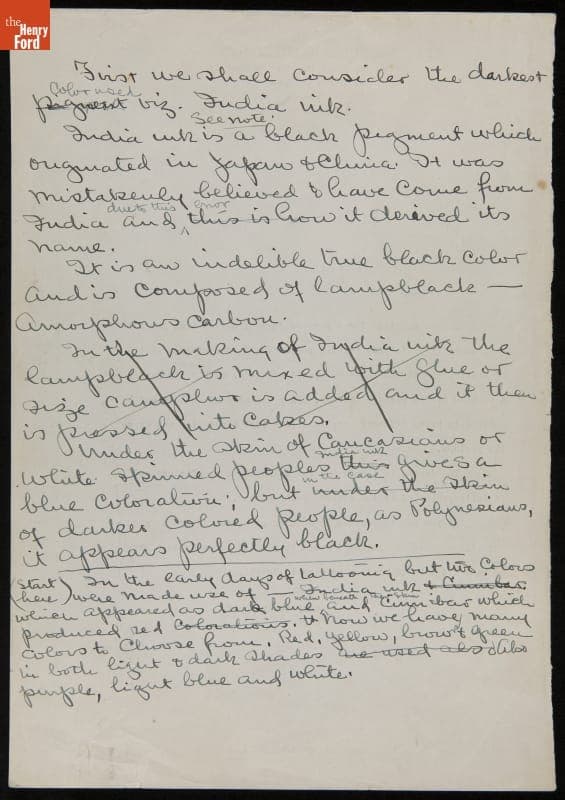 the
Henry
Ford
First we shall consider the darkest
color used
pigment viz. India ink.
See note.
India ink is a black pigment which
originated in Japan & China. It was
mistakenly believed to have come from
due to this error
India and this is how it derived its
name.
It is an indelible true black color
and is composed of lampblack —
amorphous carbon.
In the making of India ink the
lampblack is mixed with glue or
size camphor is added and it then
is pressed into cakes.
Under the skin of Caucasians or
India ink
white skinned peoples this gives a
in the case
blue coloration; but under the skin
of darker colored people, as Polynesians,
it appears perfectly black.
(start In the early days of tattooing but two colors
here) were made use of — India ink & Cinnibar
when beneath the skin
which appeared as dark blue and Cinnibar which
produced red colorations. Now we have many
colors to choose from. Red, yellow, brown & green
in both light & dark shades are used also Also
purple, light blue and white.